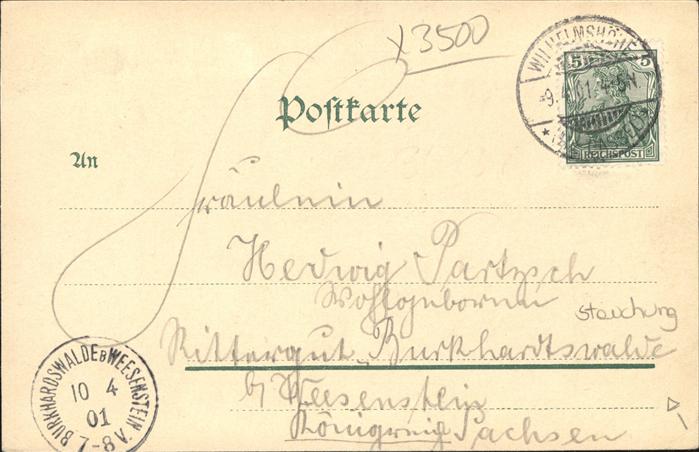 x3500
WILHELMSHÖHE
-9. 01. 4-5N.
5 5
REICHSPOST
Postkarte
An
Fräulein
Hedwig Partzsch
Wohlgeboren
Stauchung
Rittergut Burkhardtswalde
b/ Weesenstein
Königreich Sachsen
BURKHARDSWALDE B WEESENSTEIN
10 4
01
7-8 V.